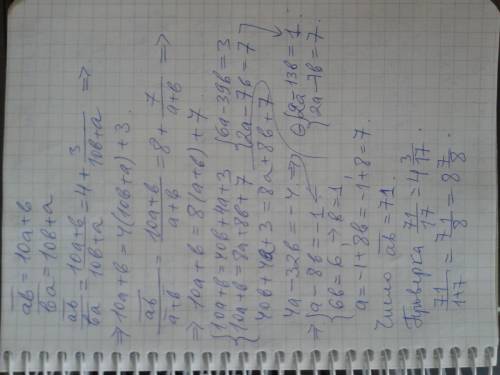 ab = 10a+b
ba = 10b+a
ab/ba = (10a+b)/(10b+a) = 4 + 3/(10b+a) ⇒
⇒ 10a+b = 4(10b+a)+3.
ab/(a+b) = (10a+b)/(a+b) = 8 + 7/(a+b) ⇒
⇒ 10a+b = 8(a+b)+7
{10a+b = 40b+4a+3 {6a-39b=3
{10a+b = 8a+8b+7 {2a-7b=7
40b+4a+3 = 8a+8b+7
4a-32b = -4. ⇒ {2a-13b=1.
⇒ {a-8b=-1 {2a-7b=7.
{6b=6 → b=1
a=-1+8b=-1+8=7.
Число ab=71.
Проверка 71/17 = 4 3/17
71/(1+7) = 71/8 = 8 7/8